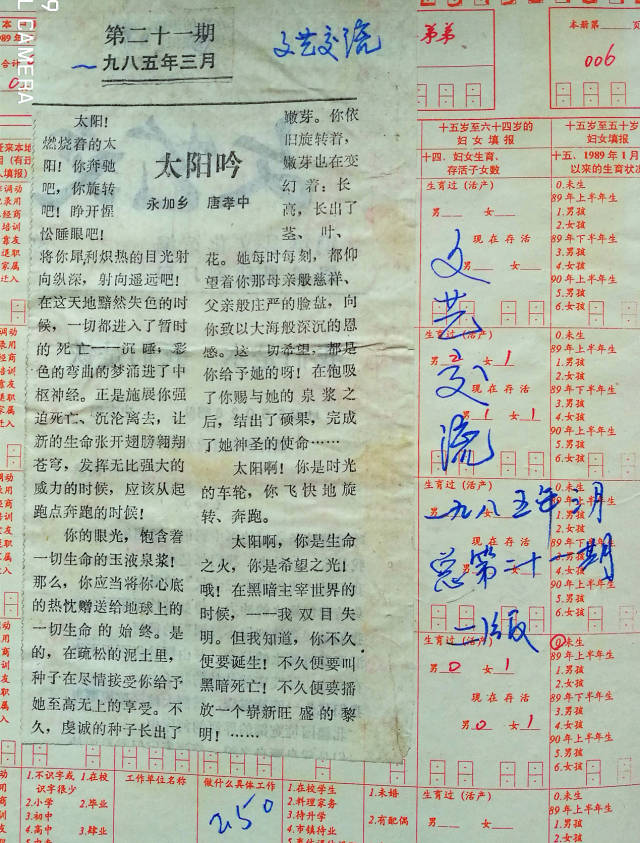 第二十一期
一九八五年三月
文艺交流
太阳吟
永加乡 唐孝中
太阳!
燃烧着的太
阳!你奔驰
吧,你旋转
吧!睁开惺
忪睡眼吧!
将你犀利炽热的目光射
向纵深,射向遥远吧!
在这天地黯然失色的时
候,一切都进入了暂时
的死亡——沉睡;彩
色的弯曲的梦涌进了中
枢神经。正是施展你强
迫死亡、沉沦离去,让
新的生命张开翅膀翱翔
苍穹,发挥无比强大的
威力的时候,应该从起
跑点奔跑的时候!
你的眼光,饱含着
一切生命的玉液泉浆!
那么,你应当将你心底
的热忱赠送给地球上的
一切生命的始终。是
的,在疏松的泥土里,
种子在尽情接受你给予
她至高无上的享受。不
久,虔诚的种子长出了
嫩芽。你依
旧旋转着,
嫩芽也在变
幻着:长
高,长出了
茎、叶、
花。她每时每刻,都仰
望着你那母亲般慈祥、
父亲般庄严的脸盘,向
你致以大海般深沉的恩
感。这一切希望,都是
你给予她的呀!在饱吸
了你赐与她的泉浆之
后,结出了硕果,完成
了她神圣的使命……
太阳啊!你是时光
的车轮,你飞快地旋
转、奔跑。
太阳啊,你是生命
之火,你是希望之光!
哦!在黑暗主宰世界的
时候,——我双目失
明。但我知道,你不久
便要诞生!不久便要叫
黑暗死亡!不久便要播
放一个崭新旺盛的黎
明!……
弟弟
本册第 页
006
十五岁至六十四岁的
妇女填报
十四、妇女生育、
存活子女数
十五岁至五十岁
妇女填报
十五、1989年1月
以来的生育状况
生育过(活产)
男 女
现在存活
男 女
0.未生
89年上半年生
1.男孩
2.女孩
89年下半年生
3.男孩
4.女孩
90年上半年生
5.男孩
6.女孩
文艺交流
生育过(活产)
男 2 女 1
现在存活
男 1 女 1
0.未生
89年上半年生
1.男孩
2.女孩
89年下半年生
3.男孩
4.女孩
90年上半年生
5.男孩
6.女孩
一九八五年三月
总第二十一期
二版
生育过(活产)
男 0 女 1
现在存活
男 0 女 1
0.未生
89年上半年生
1.男孩
2.女孩
89年下半年生
3.男孩
4.女孩
90年上半年生
5.男孩
6.女孩
1.不识字或
识字很少
2.小学
3.初中
4.高中
1.在校
2.毕业
3.肄业
工作单位名称
做什么具体工作
250
1.在校学生
2.料理家务
3.待升学
4.市镇待业
1.未婚
2.有配偶
生育过(活产)
男 女
现在存活
0.未生
89年上半年生
1.男孩
2.女孩
89年下半年生
3.男孩